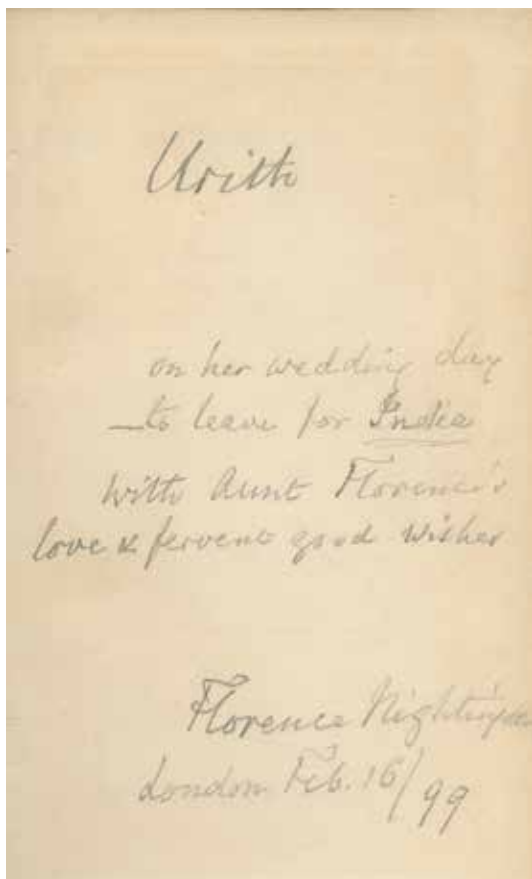 Urith
on her wedding day
— to leave for India
with Aunt Florence's
love & fervent good wishes
Florence Nightingale
London Feb. 16/99